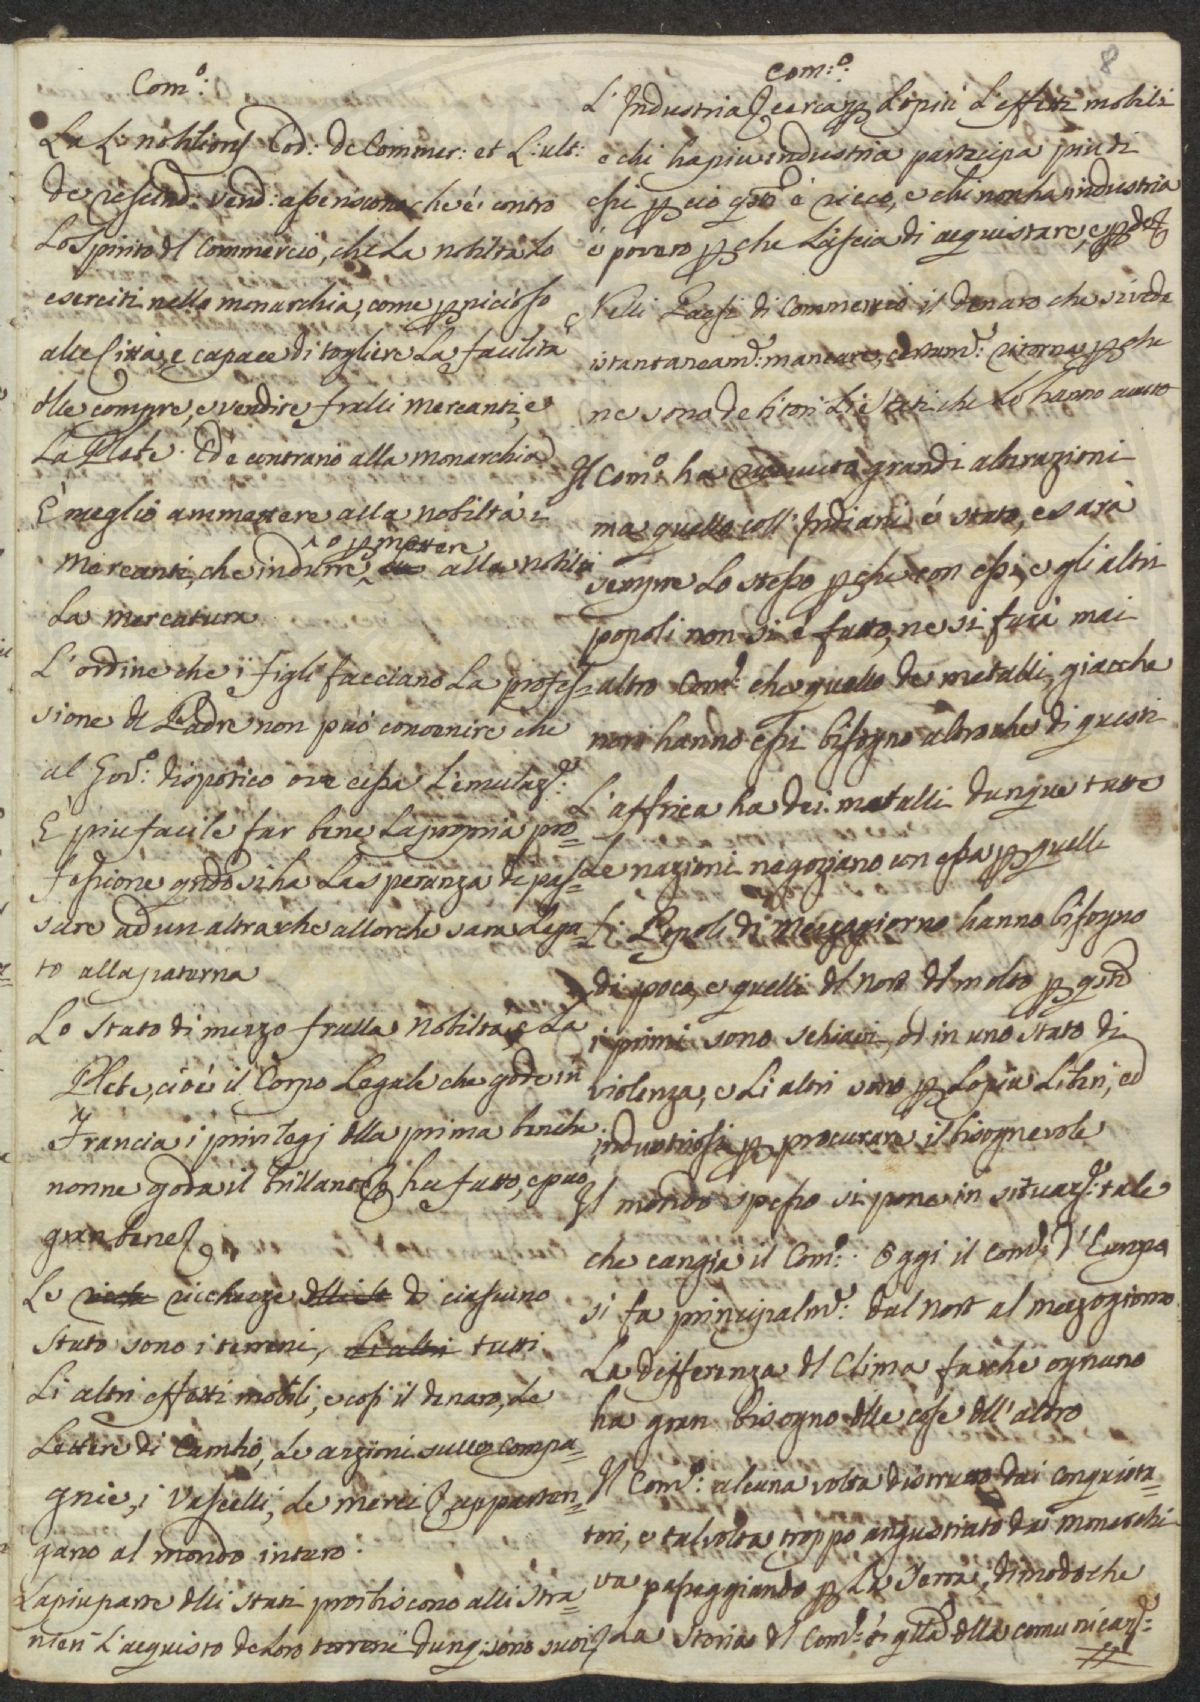 Com.o:
La L: nobiliores Cod: de Commer: et L: ult:
de rescind: vend: asseriscono che é contro
Lo Spirito dl Commercio, che La nobiltà lo
eserciti nella monarchia, come pnicioso
alle Città, e capace di togliere La facilità
dlle compre, e vendite fralli mercanti, e
La Plebe. Ed é contrario alla monarchia
É meglio ammettere alla nobiltà i
mercanti, che indurre, o pmettere alla nobiltà
La mercatura
L'ordine che i figli facciano La profes=
sione dl Padre non può convenire che
al Gov.o: dispotico ove cessa L'emulaz.e:
É piu facile far bene La propria pro=
fessione qndo si ha La speranza di pas=
sare ad un altra che allorche sara Lega=
to alla paterna
Lo stato di mezzo fralla Nobiltà, e La
Plebe, cioé il Corpo Legale che gode in
Francia i privilegj dlla prima benche
non ne goda il brillante ha fatto, e può
gran bene
Le ricchezze di ciascuno
stato sono i terreni, tutti
Li altri effetti mobili, e cosi il denaro, Le
Lettere di Cambio, Le azzioni sulle compa=
gnie, i Vascelli, Le merci apparten=
gano al mondo intero:
La piu parte dlli stati proibiscono alli stra=
nieri L'acquisto de Loro terreni dunq: sono suoi
8
Com:o:
L'Industria cerca p Lo piu L'effetti mobili
e chi ha piu industria partecipa piu di
essi p cio qsto é ricco, e chi non ha industria
é povero p che Lascia di acquistare, e pde
Nelli Paesi di Commercio il denaro che si vede
istantaneam.e: mancare, certam.e: ritorna p che
ne sono debitori Li Stati che Lo hanno avuto
Il Com.o ha ricevuto grandi alterazioni
ma quello coll'Indiani é stato, e sarà
sempre Lo stesso p che con essi, e gli altri
popoli non si é fatto, ne si farà mai
altro Com.o: che quello de metalli, giacche
non hanno essi bisogno altro che di questi
L'affrica ha dei metalli dunque tutte
Le nazioni negoziano con essa p quelli
Li Popoli di Mezzogiorno hanno bisogno
di poco, e quelli dl nort dl molto p qsto
i primi sono schiavi, ed in uno stato di
violenza, e Li altri sono p Lo piu Liberi, ed
industriosi p procurare il bisognevole
Il mondo spesso si pone in situaz.e: tale
che cangia il Com.o: Oggi il Com.o: d'Europa
si fa principalm.e: dal nort al mezzogiorno
La differenza dl Clima fa che ognuno
ha gran bisogno dlle cose dll'altro
Il Com.o: alcuna volta distrutto dai conquista=
tori, e talvolta troppo angustiato dai monarchi
va passeggiando p La Terra, dimodoche
La Storia dl Com.o: é qlla dlla comunicaz.e: